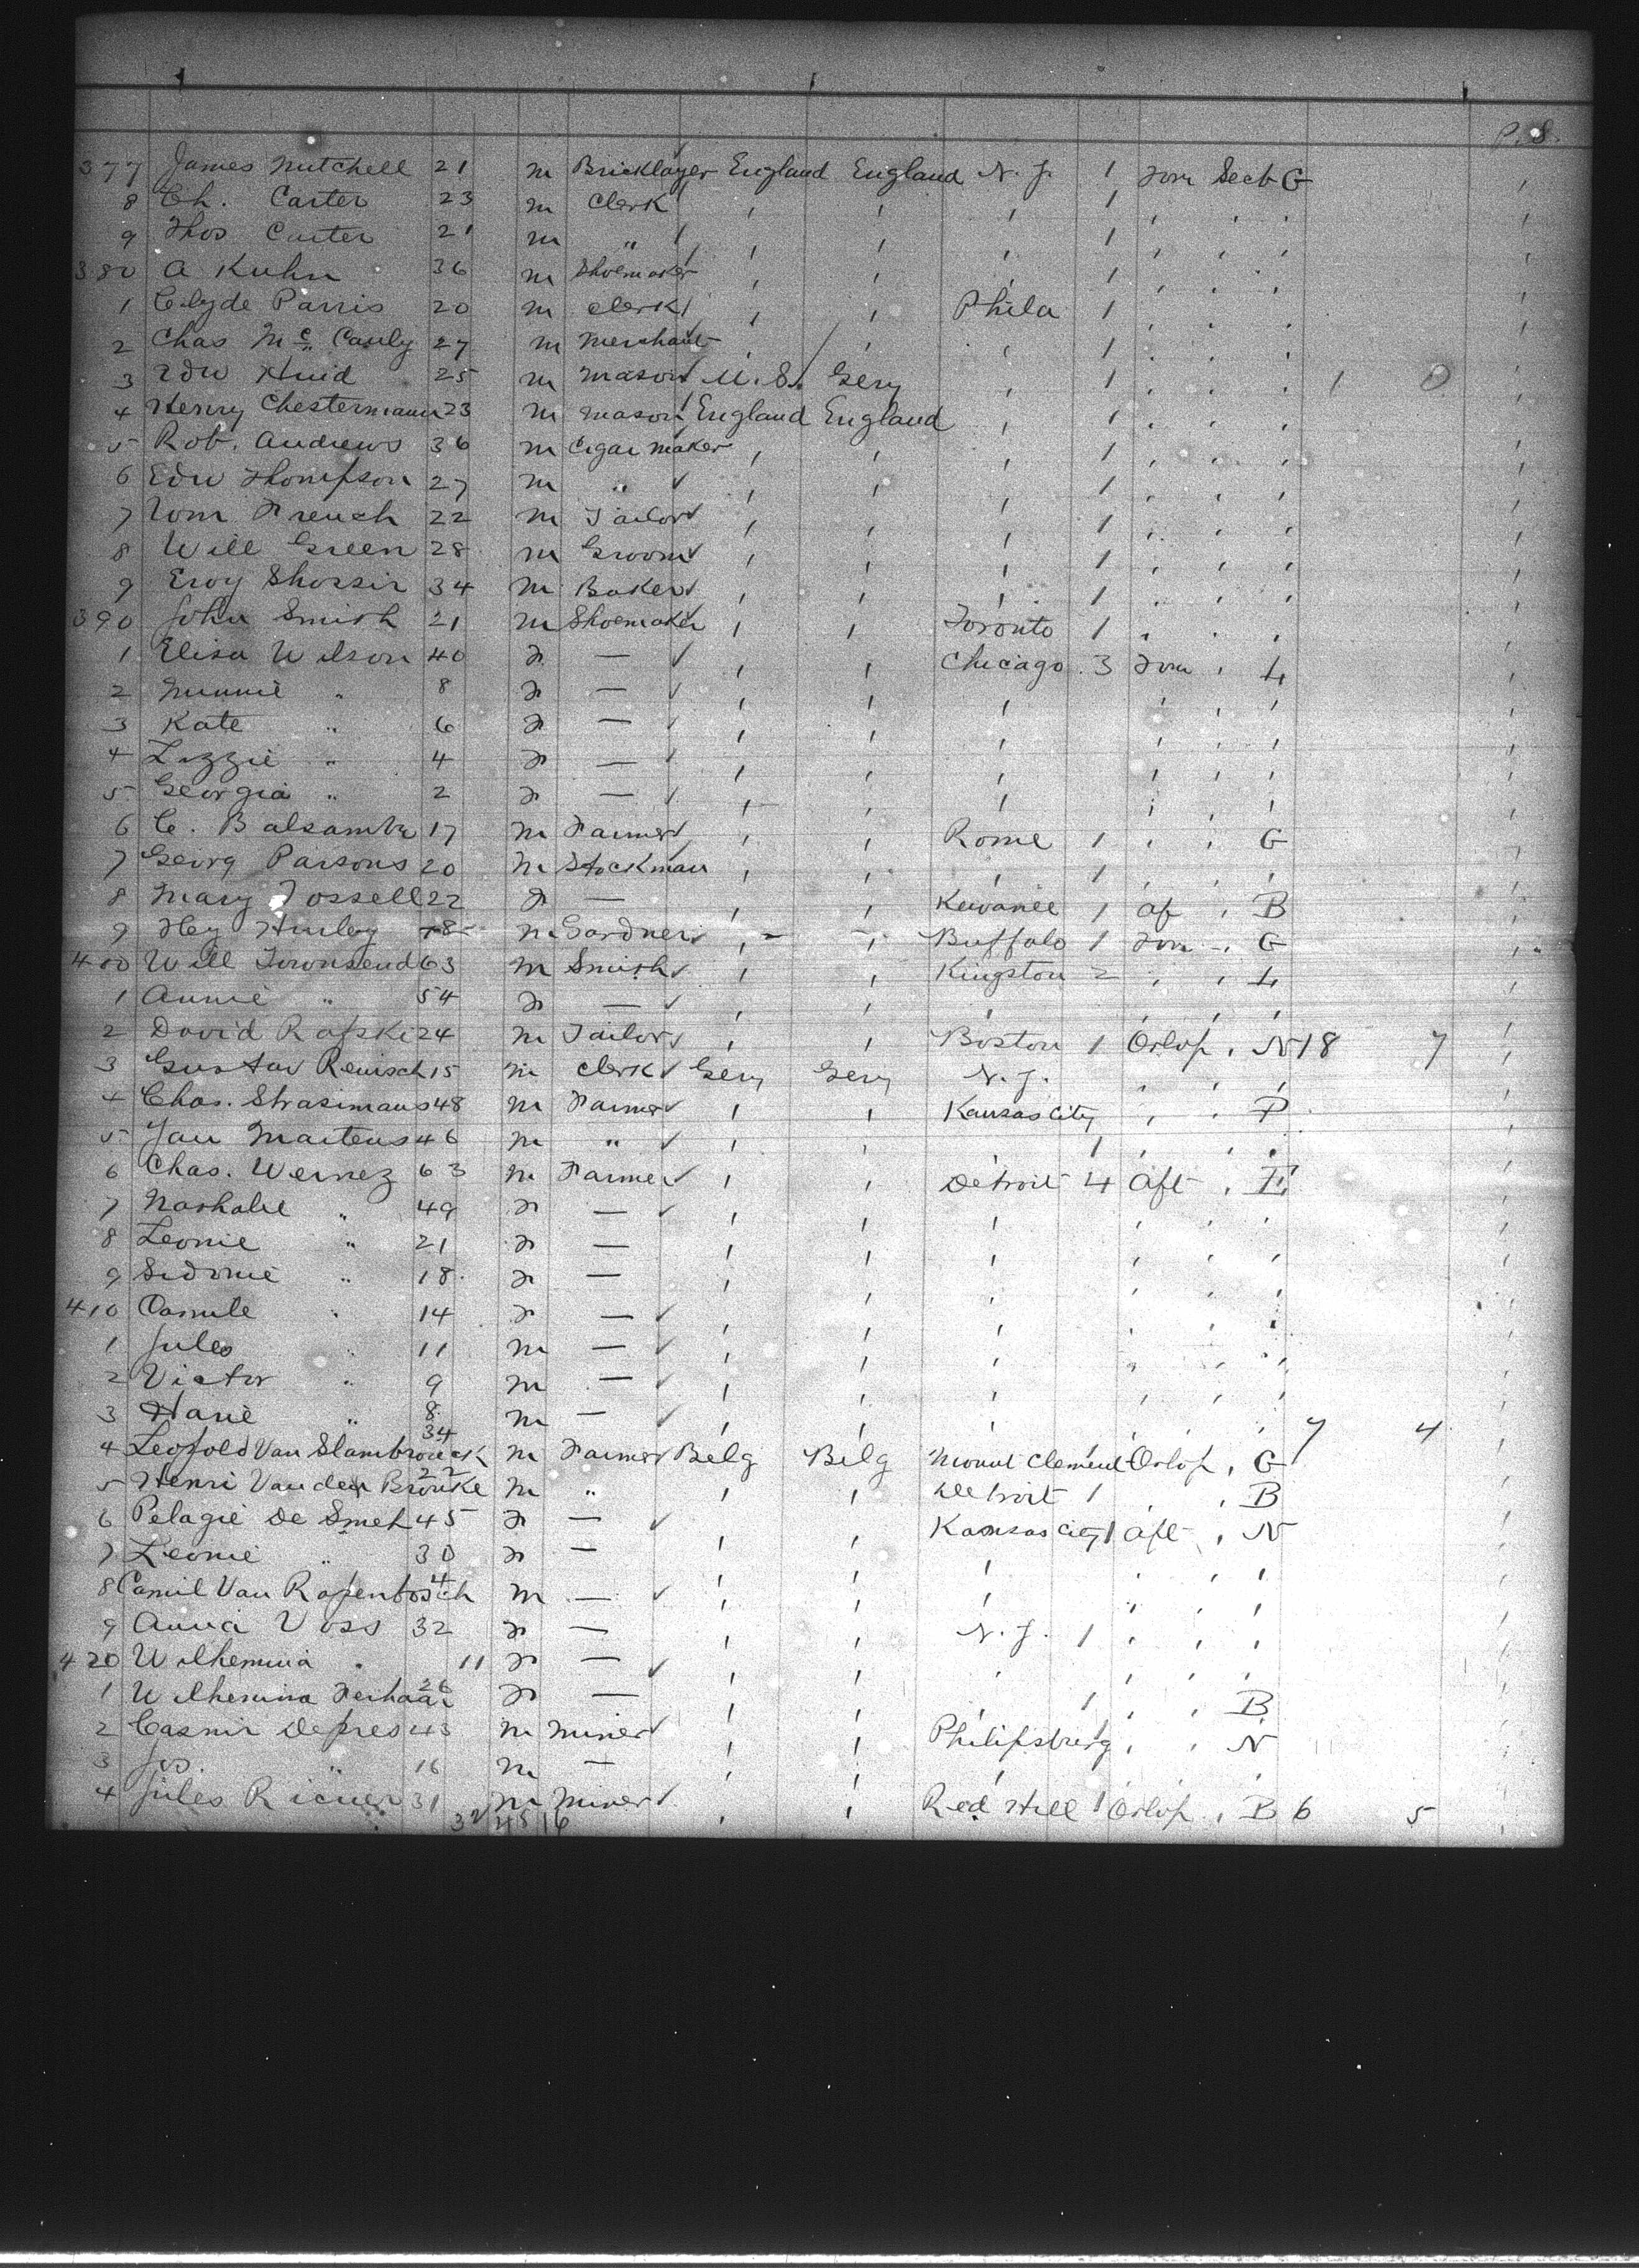 P. S.
377 James Mitchell 21 m Bricklayer England England N. J. 1 For Sect G
8 Ch. Carter 23 m Clerk , , , 1 , , ,
9 Thos Carter 21 m " , , , 1 , , ,
380 A Kuhn 36 m Shoemaker , , , 1 , , ,
1 Clyde Parris 20 m Clerk , , Phila 1 , , ,
2 Chas Mc Cauly 27 m Merchant , , , 1 , , ,
3 Edw 25 m Mason U. S. Gery , 1 , , , 1 0
4 Henry Chestermann 23 m Mason England England , 1 , , ,
5 Rob. Andrews 36 m Cigar maker , , , 1 , , ,
6 Edw Thompson 27 m " , , , 1 , , ,
7 Wm French 22 m Tailor , , , 1 , , ,
8 Will Green 28 m Groom , , , 1 , , ,
9 34 m Baker , , , 1 , , ,
390 John Smith 21 m Shoemaker , , Toronto 1 , , ,
1 Elisa Wilson 40 F — , , Chicago 3 For , L
2 Minnie " 8 F — , , , , , ,
3 Kate " 6 F — , , , , , ,
4 Lizzie " 4 F — , , , , , ,
5 Georgia " 2 F — , , , , , ,
6 C. 17 m Farmer , , Rome 1 , , G
7 Georg Parsons 20 m Stockman , , , 1 , , ,
8 Mary Tossell 22 F — , , Kewanee 1 Af , B
9 Hey Hurley 18 m Gardner , , Buffalo 1 For , G
400 Will Townsend 63 m Smith , , Kingston 2 , , L
1 Annie " 54 F — , , , , , ,
2 David 24 m Tailor , , Boston 1 Orlop , N 18 7
3 Gustav Reinisch 15 m Clerk Gery Gery N. J. , , ,
4 Chas. 48 m Farmer , , Kansas City , , P
5 Jan Martens 46 m " , , , 1 , , ,
6 Chas. Wernez 63 m Farmer , , Detroit 4 Aft , E
7 Nathalie " 49 F — , , , , , ,
8 Leonie " 21 F — , , , , , ,
9 Sidonie " 18 F — , , , , , ,
410 14 F — , , , , , ,
1 Jules " 11 m — , , , , , ,
2 Victor " 9 m — , , , , , ,
3 " 8 m — , , , , , , 7 4
4 Leopold Van Slambrouck 34 m Farmer Belg Belg Mount Clement Orlop , G
5 Henri Vanden Broucke 22 m " , , Detroit 1 , , B
6 Pelagie De Smet 45 F — , , Kansas City 1 Aft , N
7 Leonie " 30 F — , , , , , ,
8 Camil Van Rapenbosch 4 m — , , , , , ,
9 Anna Voss 32 F — , , N. J. 1 , , ,
420 Wilhemina " 11 F — , , , , , ,
1 Wilhemina 26 F — , , , 1 , , B
2 Casmir Depres 43 m Miner , , Philipsburg , , N
3 Jos. " 16 m — , , , , , ,
4 Jules 31 m Miner , , Red Hill 1 Orlop , B 6 5
32 45 16